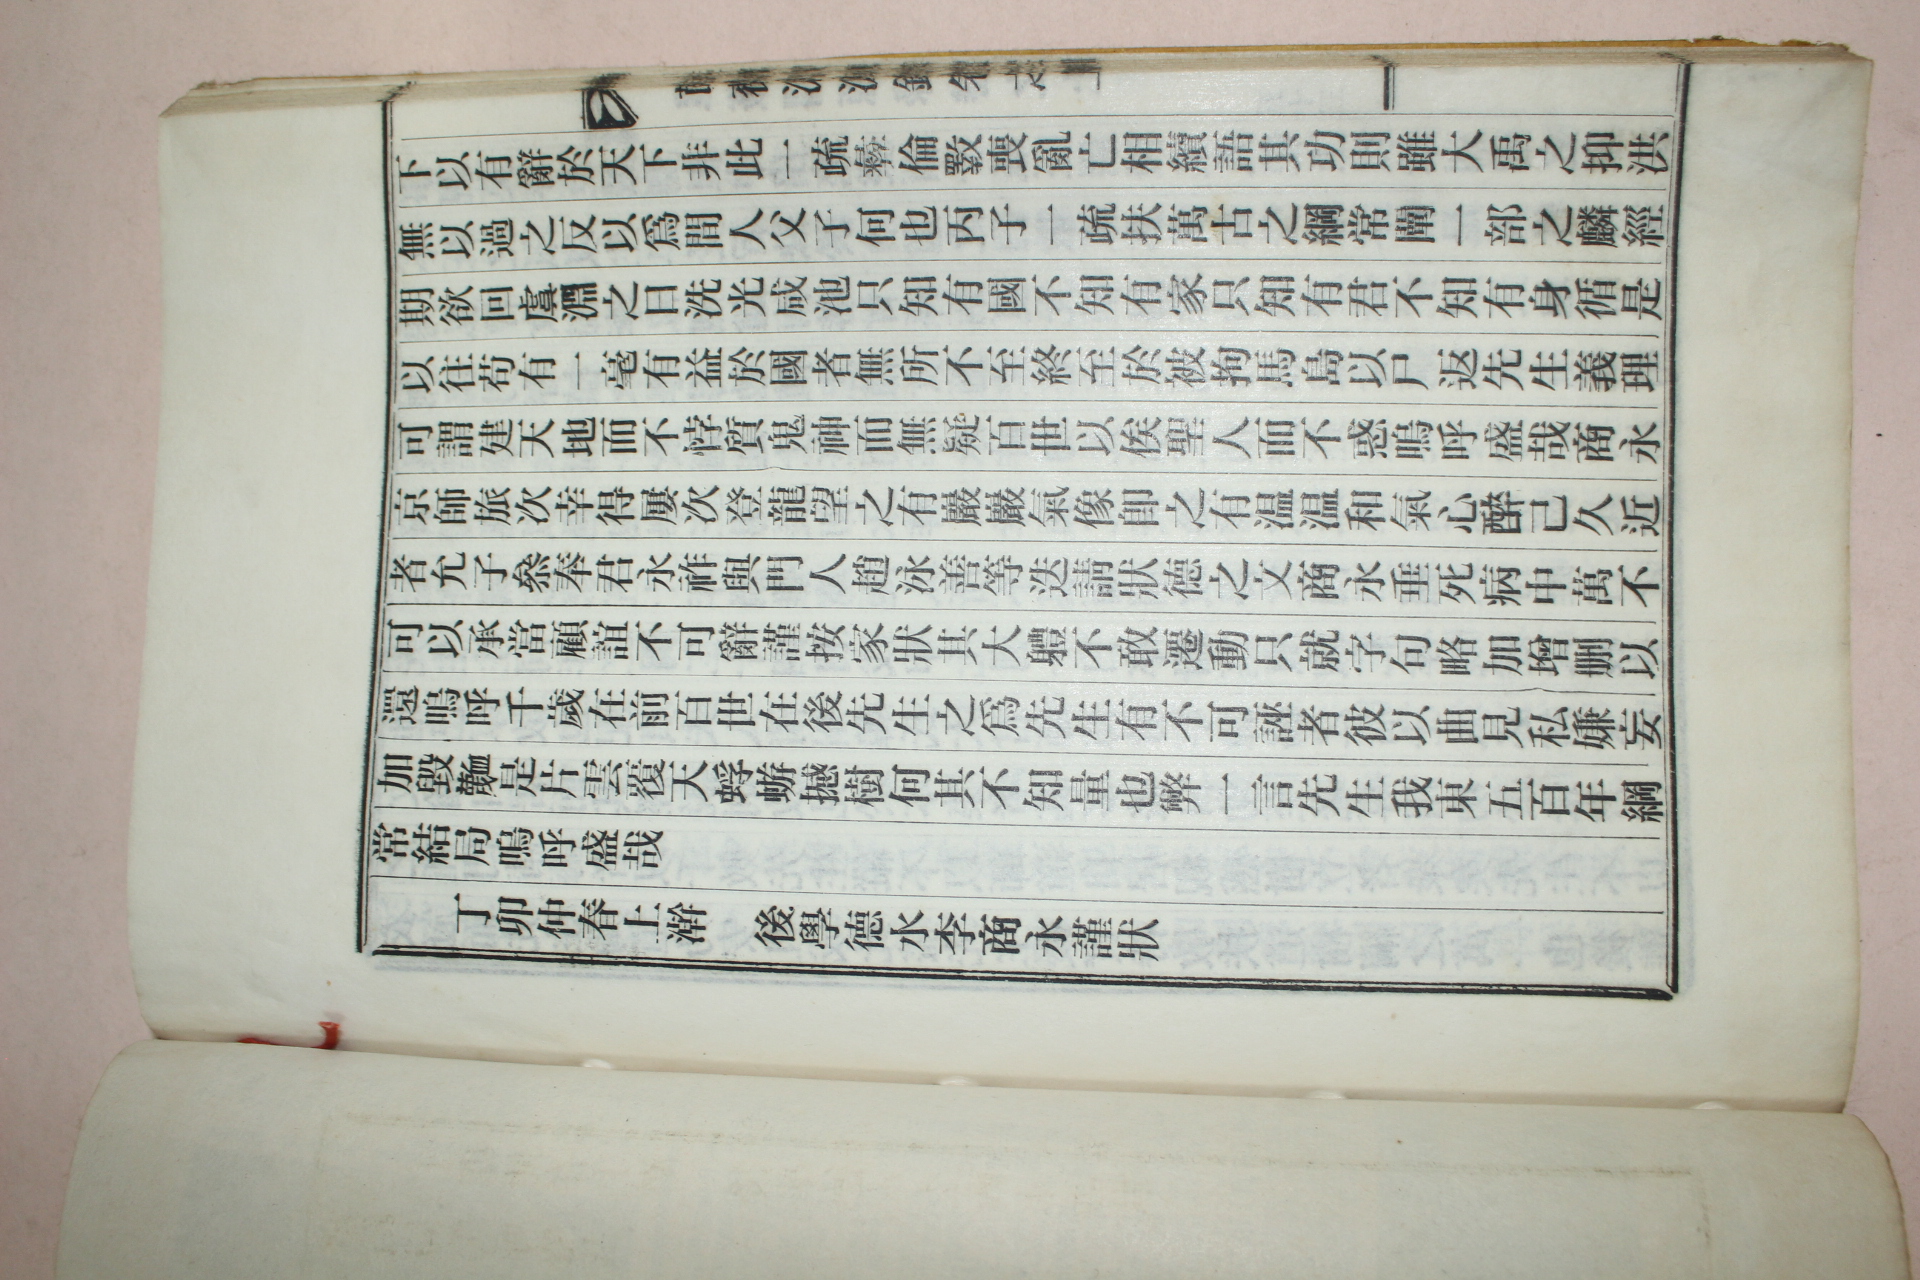 下以有辭於天下非此一疏彝倫斁喪亂亡相續語其功則雖大禹之抑洪
無以過之反以爲間人父子何也丙子一疏扶萬古之綱常闡一部之麟經
期欲回虞淵之日洗光咸池只知有國不知有家只知有君不知有身循是
以往苟有一毫有益於國者無所不至終至於被拘馬島以尸返先生義理
可謂建天地而不悖質鬼神而無疑百世以俟聖人而不惑嗚呼盛哉商永
京師旅次幸得屢次登龍望之有嚴嚴氣像卽之有温温和氣心醉已久近
者允子叅奉君永祚與門人趙泳善等迭請狀德之文商永垂死病中萬不
可以承當顧誼不可辭謹按家狀其大軆不敢遷動只就字句略加增删以
還嗚呼千歲在前百世在後先生之爲先生有不可誣者彼以曲見私嫌妄
加毀是片雲覆天蜉蝣撼樹何其不知量也弊一言先生我東五百年綱
常結局嗚呼盛哉
丁卯仲春上澣 後學德水李商永謹狀